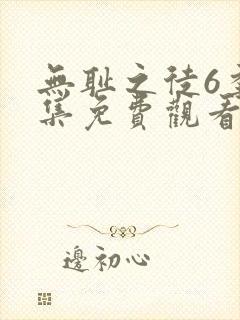 無耻之徒6季
集免費觀看
邊初心